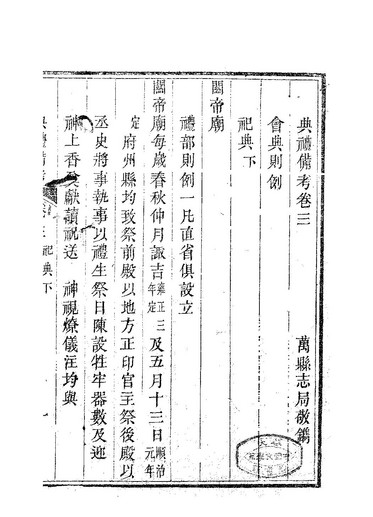 典禮備考卷三
萬縣志局敬鐫
會典則例
祀典下
關帝廟
禮部則例一凡直省俱設立
關帝廟每歲春秋仲月諏吉雍正三年定及五月十三日順治元年
定府州縣均致祭前殿以地方正印官主祭後殿以
丞史將事執事以禮生祭日陳設牲牢器數及迎
神上香奠獻讀祝送　神視燎儀注均與
祀典下